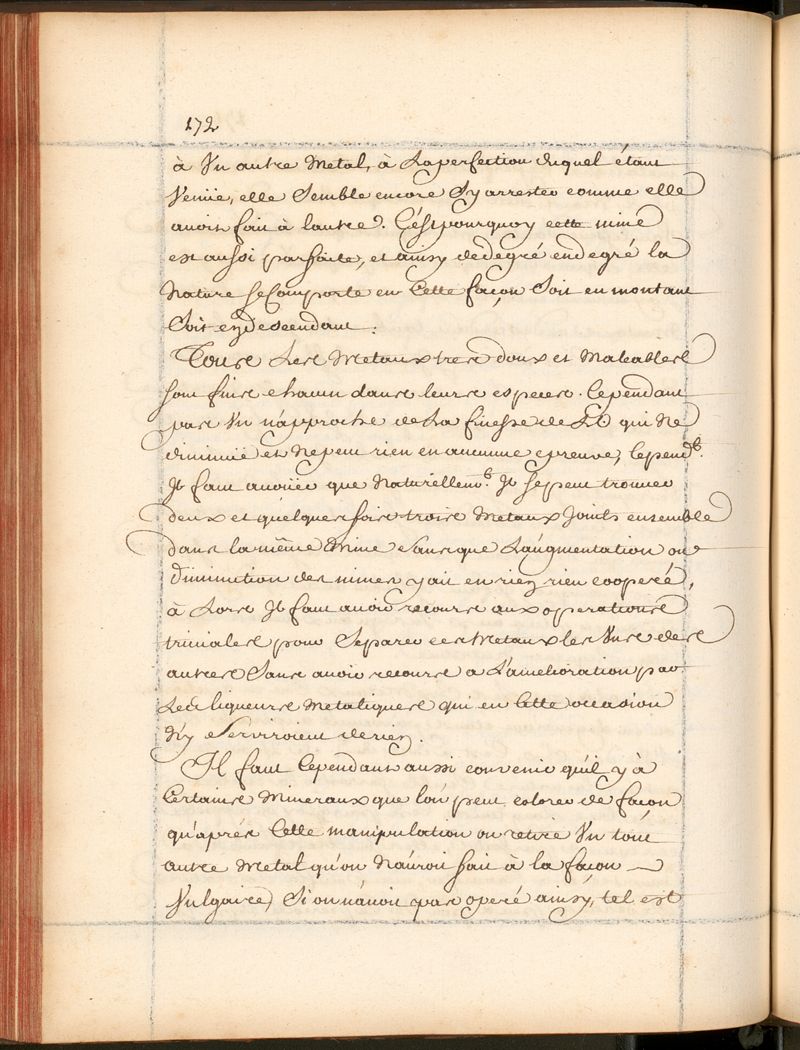 172
à Vn autre Metal, à Laperfection duquel étant
Venüe, elle Semble encore Sy arrester comme elle
avoit fait à lautre. C'est pourquoy cette mine
est aussi parfaite, et ainsy dedegré endegré la
Nature se Comporte en Cette façon Soit en montant
Soit en descendant.
Tous Les Metaux tres doux et Maleables
sont fins chacun dans leurs especes. Cependant
pas Vn n'approche de La finesse de qui Ne
diminüe et Ne peut rien en aucunne epreuve, Cepend.t
Il faut avoüer que Naturellem.t Il se peut trouver
deux et quelques fois trois Metaux Joints ensemble
dans la même Mine Sans que L'augmentation ou
diminution des mines y ait en rien rien cooperé,
à Lors Il faut avoir recours aux operations
triviales pour Separer ces Metaux les Vns des
autres Sans avoir recours a L'amelioration par
Les liqueurs Metaliques qui en Cette occasion
N'y Serviroient de rien.
Il faut Cependant aussi convenir qu'il y à
Certains Mineraux que l'on peut colorer de façon
qu'aprés Cette manipulation on retire Vn tout
autre Metal qu'on N'auroit fait à la façon
Vulgaire, Si on n'avoit pas operé ainsy, tel est